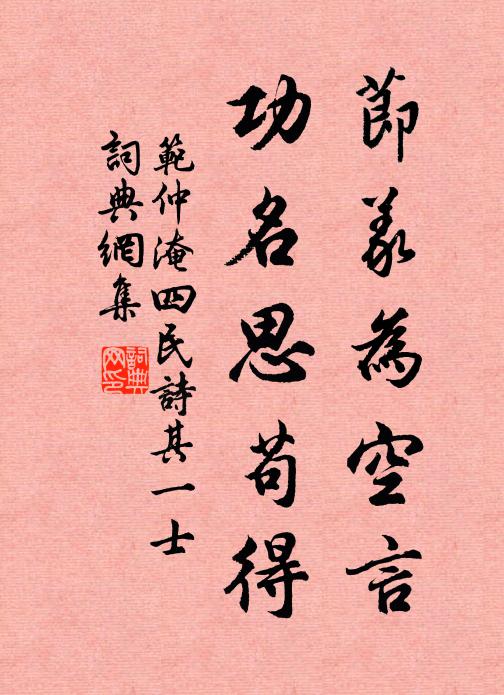 節義為空言
功名思苟得
範仲淹四民詩其一士
詞典網集
詞典網印